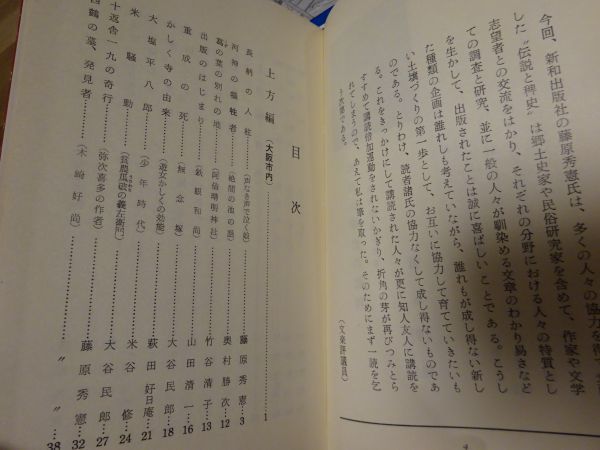 今回、新和出版社の藤原秀憲氏は、多くの人々の協力を得て
した〝伝説と稗史〟は郷土史家や民俗研究家を含めて、作家や文学
志望者との交流をはかり、それぞれの分野における人々の特質とし
ての調査と研究、並に一般の人々が馴染める文章のわかり易さなど
を生かして、出版されたことは誠に喜ばしいことである。こうし
た種類の企画は誰れしも考えていながら、誰れもが成し得ない新し
い土壌づくりの第一歩として、お互いに協力して育てていきたいも
のである。とりわけ、読者諸氏の協力なくして成し得ないものであ
る。これをきっかけにして講読された人々が更に知人友人に講読を
すすめて講読倍加運動をされないかぎり、折角の芽が再びつみとら
れてしまうので、あえて私は筆を取った。そのためにまず一読を乞
う次第である。
（文楽評議員）
4
目次
上方編（大阪市内）……1
長柄の人柱（声なき声で泣く蛇）……藤原秀憲…3
河神の犠牲者（絶間の池の悪）……奥村勝次…12
葛の葉の別れの地（阿倍晴明神社）……竹谷清子…13
出版のはじまり（鉄眼和尚）……山田清一…16
重成の死（無念塚）……大谷民郎…18
かしく寺の由来（遊女かしくの効能）……萩田好日庵…21
大塩平八郎（少年時代）……米谷修…24
米騒動（貧農瓜破の義左衛門）……大谷民郎…27
十返舎一九の奇行（弥次喜多の作者）……藤原秀憲…32
西鶴の墓、発見者（木崎好尚）……〃…38